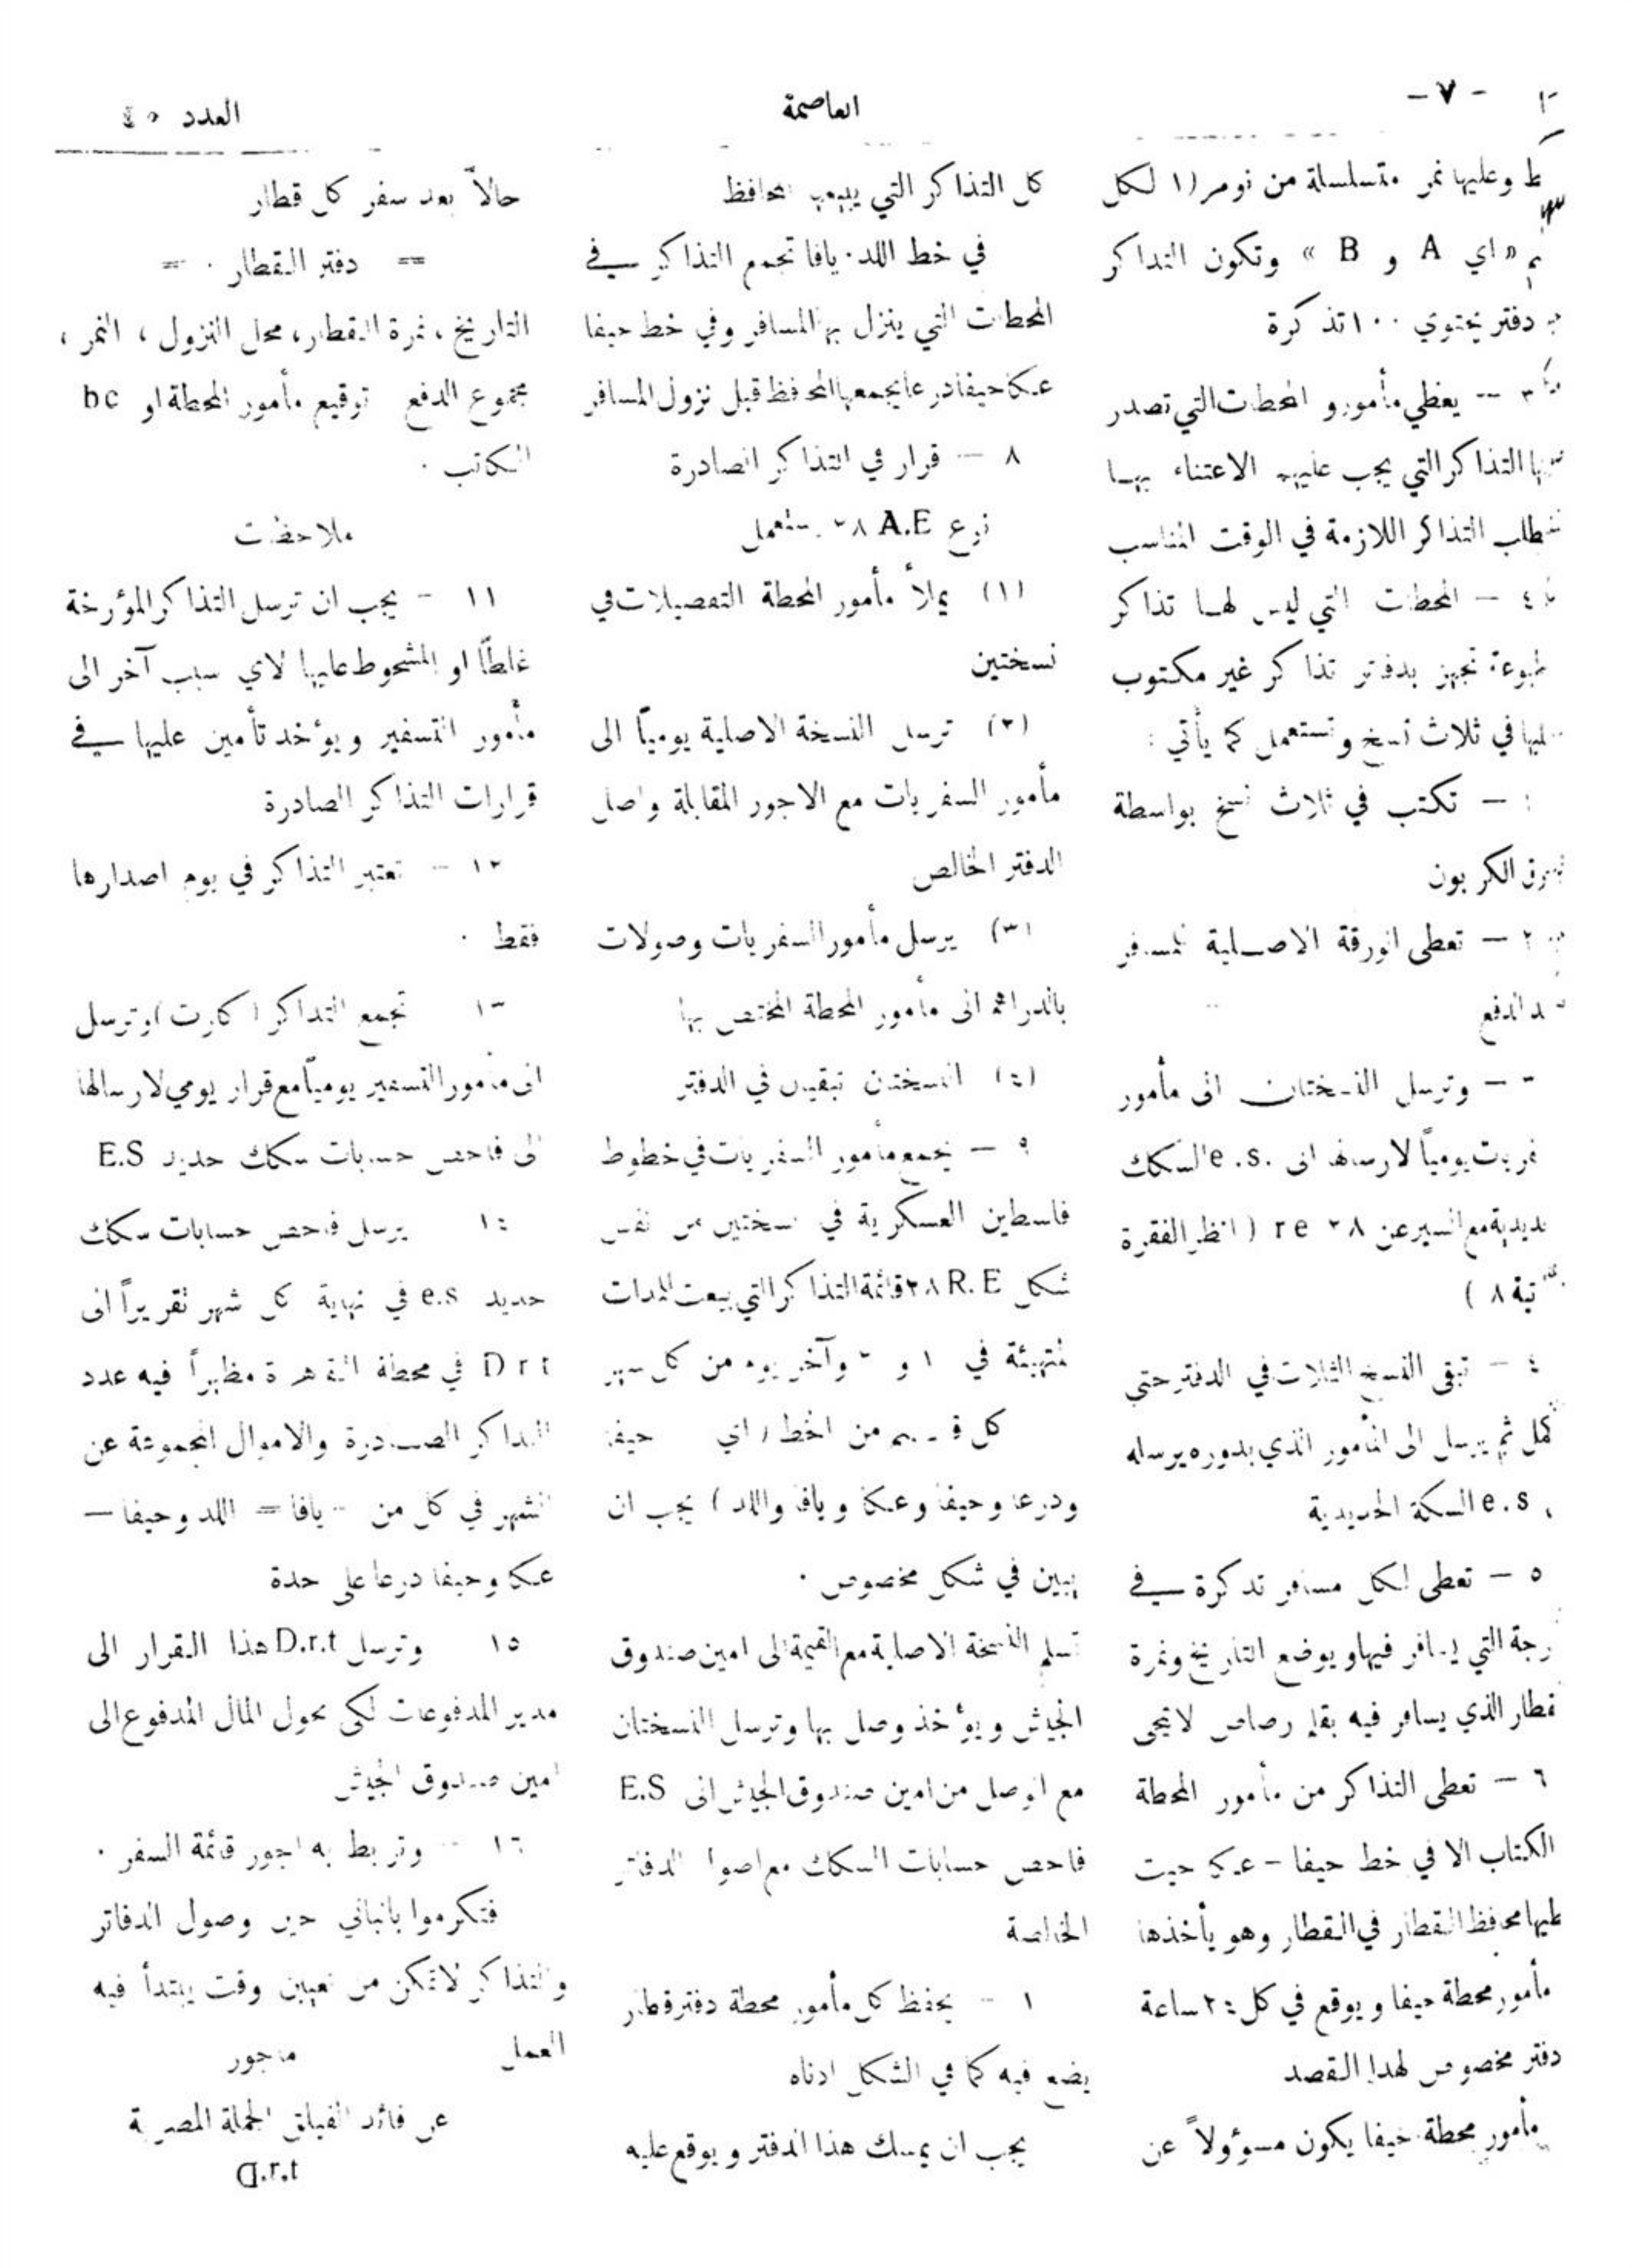 - ٧ -
العاصمة
العدد ٤٥
ط وعليها نمر متسلسلة من نومر (١ لكل
« اي A و B » وتكون التذاكر
دفتر يحتوي ١٠٠ تذكرة
٣ — يعطي مأمورو المحطات التي تصدر
التذاكر التي يجب عليهم الاعتناء بها
التذاكر اللازمة في الوقت المناسب
٤ — المحطات التي ليس لها تذاكر
تجهز بدفاتر تذاكر غير مكتوب
في ثلاث نسخ وتستعمل كما يأتي :
— تكتب في ثلاث نسخ بواسطة
الكربون
٢ — تعطى الورقة الاصلية للمسافر
الدفع
— وترسل النسختان الى مأمور
يومياً لارسالها الى e.s. السكك
٢٨ re ( انظر الفقرة
٨ )
٤ — تبقى النسخ الثلاث في الدفتر حتى
ثم يرسل الى المأمور الذي بدوره يرسله
e.s السكة الحديدية
٥ — تعطى لكل مسافر تذكرة في
التي يسافر فيها ويوضع التاريخ ونمرة
الذي يسافر فيه بقلم رصاص لا يمحى
٦ — تعطى التذاكر من مأمور المحطة
الكتاب الا في خط حيفا - عكا حيث
محافظ القطار في القطار وهو يأخذها
مأمور محطة حيفا ويوقع في كل ٢٤ ساعة
دفتر مخصوص لهذا القصد
مأمور محطة حيفا يكون مسوؤلاً عن
كل التذاكر التي يبيعها محافظ
في خط اللد . يافا تجمع التذاكر في
المحطات التي ينزل بها المسافر وفي خط حيفا
عكا حيفا درعا يجمعها المحافظ قبل نزول المسافر
٨ — قرار في التذاكر الصادرة
نوع A.E ٢٨ يستعمل
(١) يملأ مأمور المحطة التفصيلات في
نسختين
(٢) ترسل النسخة الاصلية يومياً الى
مأمور السفريات مع الاجور المقابلة واصل
الدفتر الخالص
(٣) يرسل مأمور السفريات وصولات
بالدراهم الى مأمور المحطة المختص بها
(٤) النسختان تبقيان في الدفتر
٩ — يجمع مأمور السفريات في خطوط
فلسطين العسكرية في نسختين من نفس
شكل R.E ٢٨ قائمة التذاكر التي بيعت للمدات
المنتهية في ١ و وآخر يوم من كل شهر
كل قسم من الخط ( اي حيفا
ودرعا وحيفا وعكا ويافا واللد ) يجب ان
يبين في شكل مخصوص .
تسلم النسخة الاصلية مع القيمة الى امين صندوق
الجيش ويؤخذ وصل بها وترسل النسختان
مع الوصل من امين صندوق الجيش الى E.S
فاحص حسابات السكك مع اصول الدفاتر
الخالصة
١ — يحفظ كل مأمور محطة دفتر قطار
يضع فيه كما في الشكل ادناه
يجب ان يمسك هذا الدفتر ويوقع عليه
حالاً بعد سفر كل قطار
== دفتر القطار . =
التاريخ ، نمرة القطار ، محل النزول ، النمر ،
مجموع الدفع توقيع مأمور المحطة او bc
الكاتب .
ملاحظات
١١ - يجب ان ترسل التذاكر المؤرخة
غلطاً او المشحوط عليها لاي سبب آخر الى
مأمور التسفير ويؤخذ تأمين عليها في
قرارات التذاكر الصادرة
١٢ — تعتبر التذاكر في يوم اصدارها
فقط .
١٣ تجمع التذاكر ( كارت ) وترسل
الى مأمور التسفير يومياً مع قرار يومي لارسالها
الى فاحص حسابات سكك حديد E.S
١٤ يرسل فاحص حسابات سكك
حديد e.s في نهاية كل شهر تقريراً الى
D r t في محطة القاهرة مظهراً فيه عدد
التذاكر الصادرة والاموال المجموعة عن
الشهر في كل من - يافا = اللد وحيفا —
عكا وحيفا درعا على حدة
١٥ وترسل D.r.t هذا القرار الى
مدير المدفوعات لكي يحول المال المدفوع الى
امين صندوق الجيش
١٦ — وتربط به اجور قائمة السفر .
فتكرموا بانبائي حين وصول الدفاتر
والتذاكر لاتمكن من تعيين وقت يبتدأ فيه
العمل ماجور
عن قائد الفيلق الحملة المصرية
D.r.t